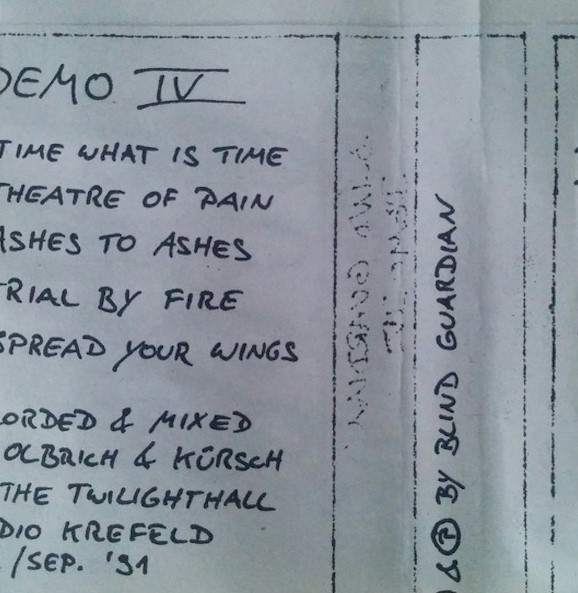 DEMO IV
TIME WHAT IS TIME
THEATRE OF PAIN
ASHES TO ASHES
TRIAL BY FIRE
SPREAD YOUR WINGS
ORDED & MIXED
OLBRICH & KÜRSCH
THE TWILIGHTHALL
DIO KREFELD
/SEP. '91
& Ⓟ BY BLIND GUARDIAN